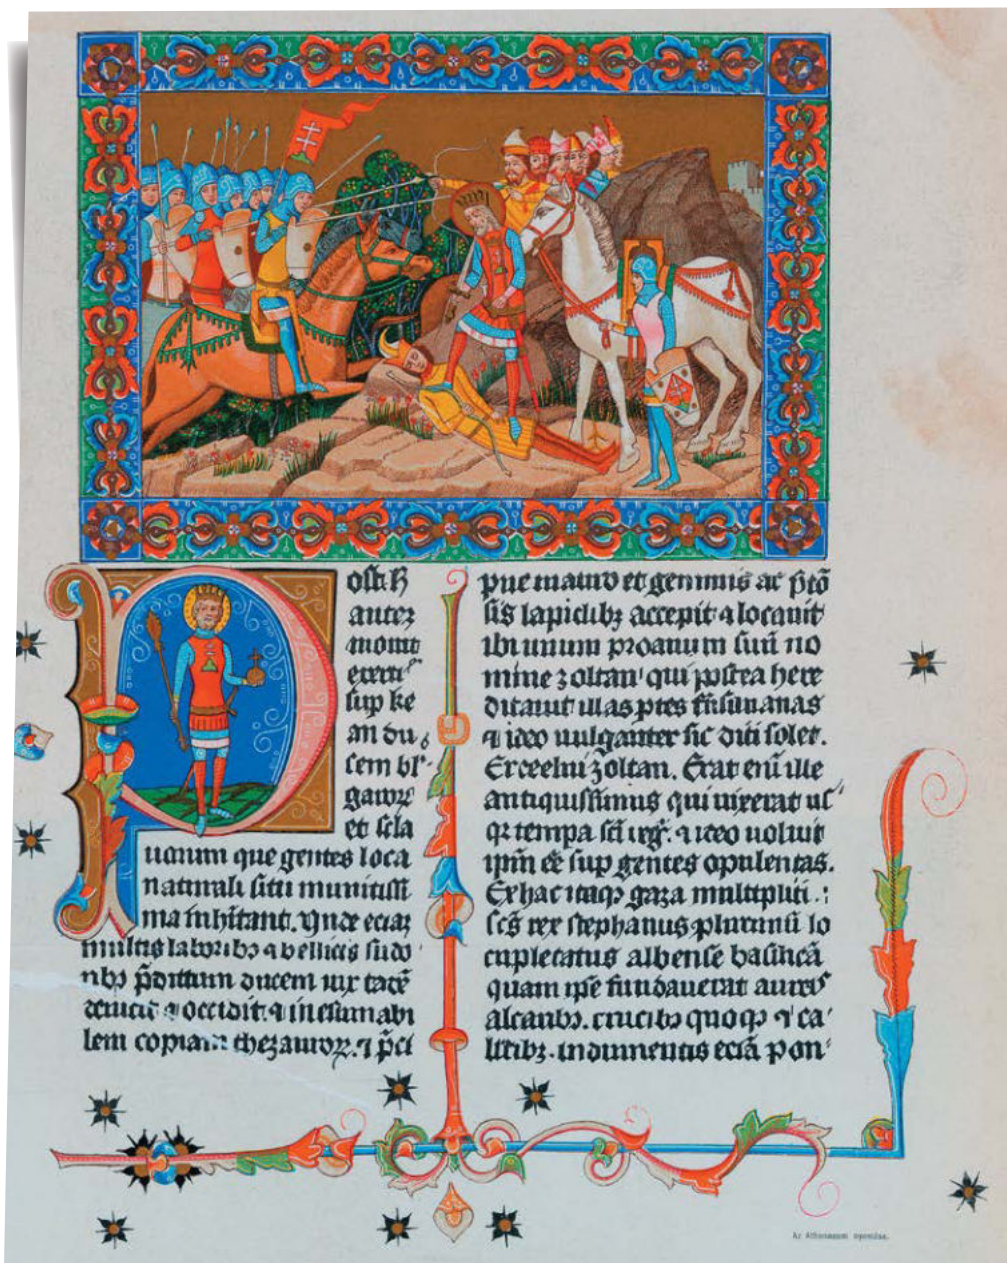 P
mouit
sup ke
an du
cem bl'
et scla
uorum que gentes loca
naturali situ munitissi
ma inhitant. Unde eciaz
multis laboribꝫ ⁊ bellicis sudo
ribꝫ p̄dittum ducem uix tādē
deuicit ⁊ occidit. ⁊ inestimabi
lem copiam thezauroꝝ. ⁊ p̄ci
pue in auro et gemmis ac p̄tō
sis lapidibꝫ accepit ⁊ locauit
ibi unum proauum suū no
mine zoltan qui postea here
ditauit illas ptes
⁊ ideo uulgariter sic dici solet.
Erdeelui zoltan. Erat enī ille
antiquissimus qui uixerat us
qꝫ tempa sc̄i reg. ⁊ ideo uoluit
ipm̄ sup gentes opulentas.
Ex hac itaqꝫ gaza multiplici.
sc̄s rex stephanus plurimū lo
cupletatus albensē basilicā
quam ipse fundauerat aureis
altaribꝫ. crucibꝫ quoqꝫ ⁊ ca
licibꝫ. indumentis eciā pon
Az Athenaeum nyomása.